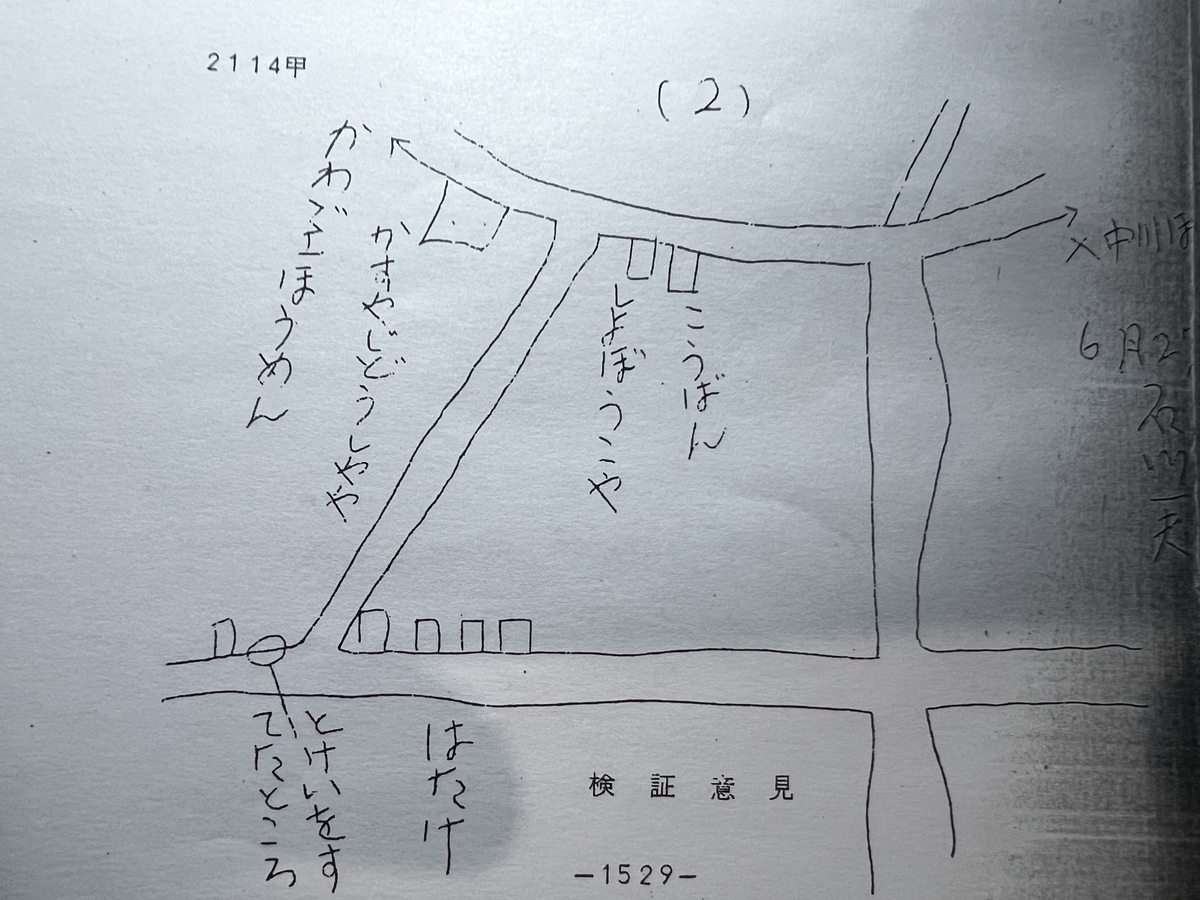 2114甲
(2)
入中川ほ
6月2
石川一夫
こうばん
しよぼうこや
かすやじどうしやや
かわごエほうめん
はたけ
とけいをす
てたところ
検証意見
−1529−